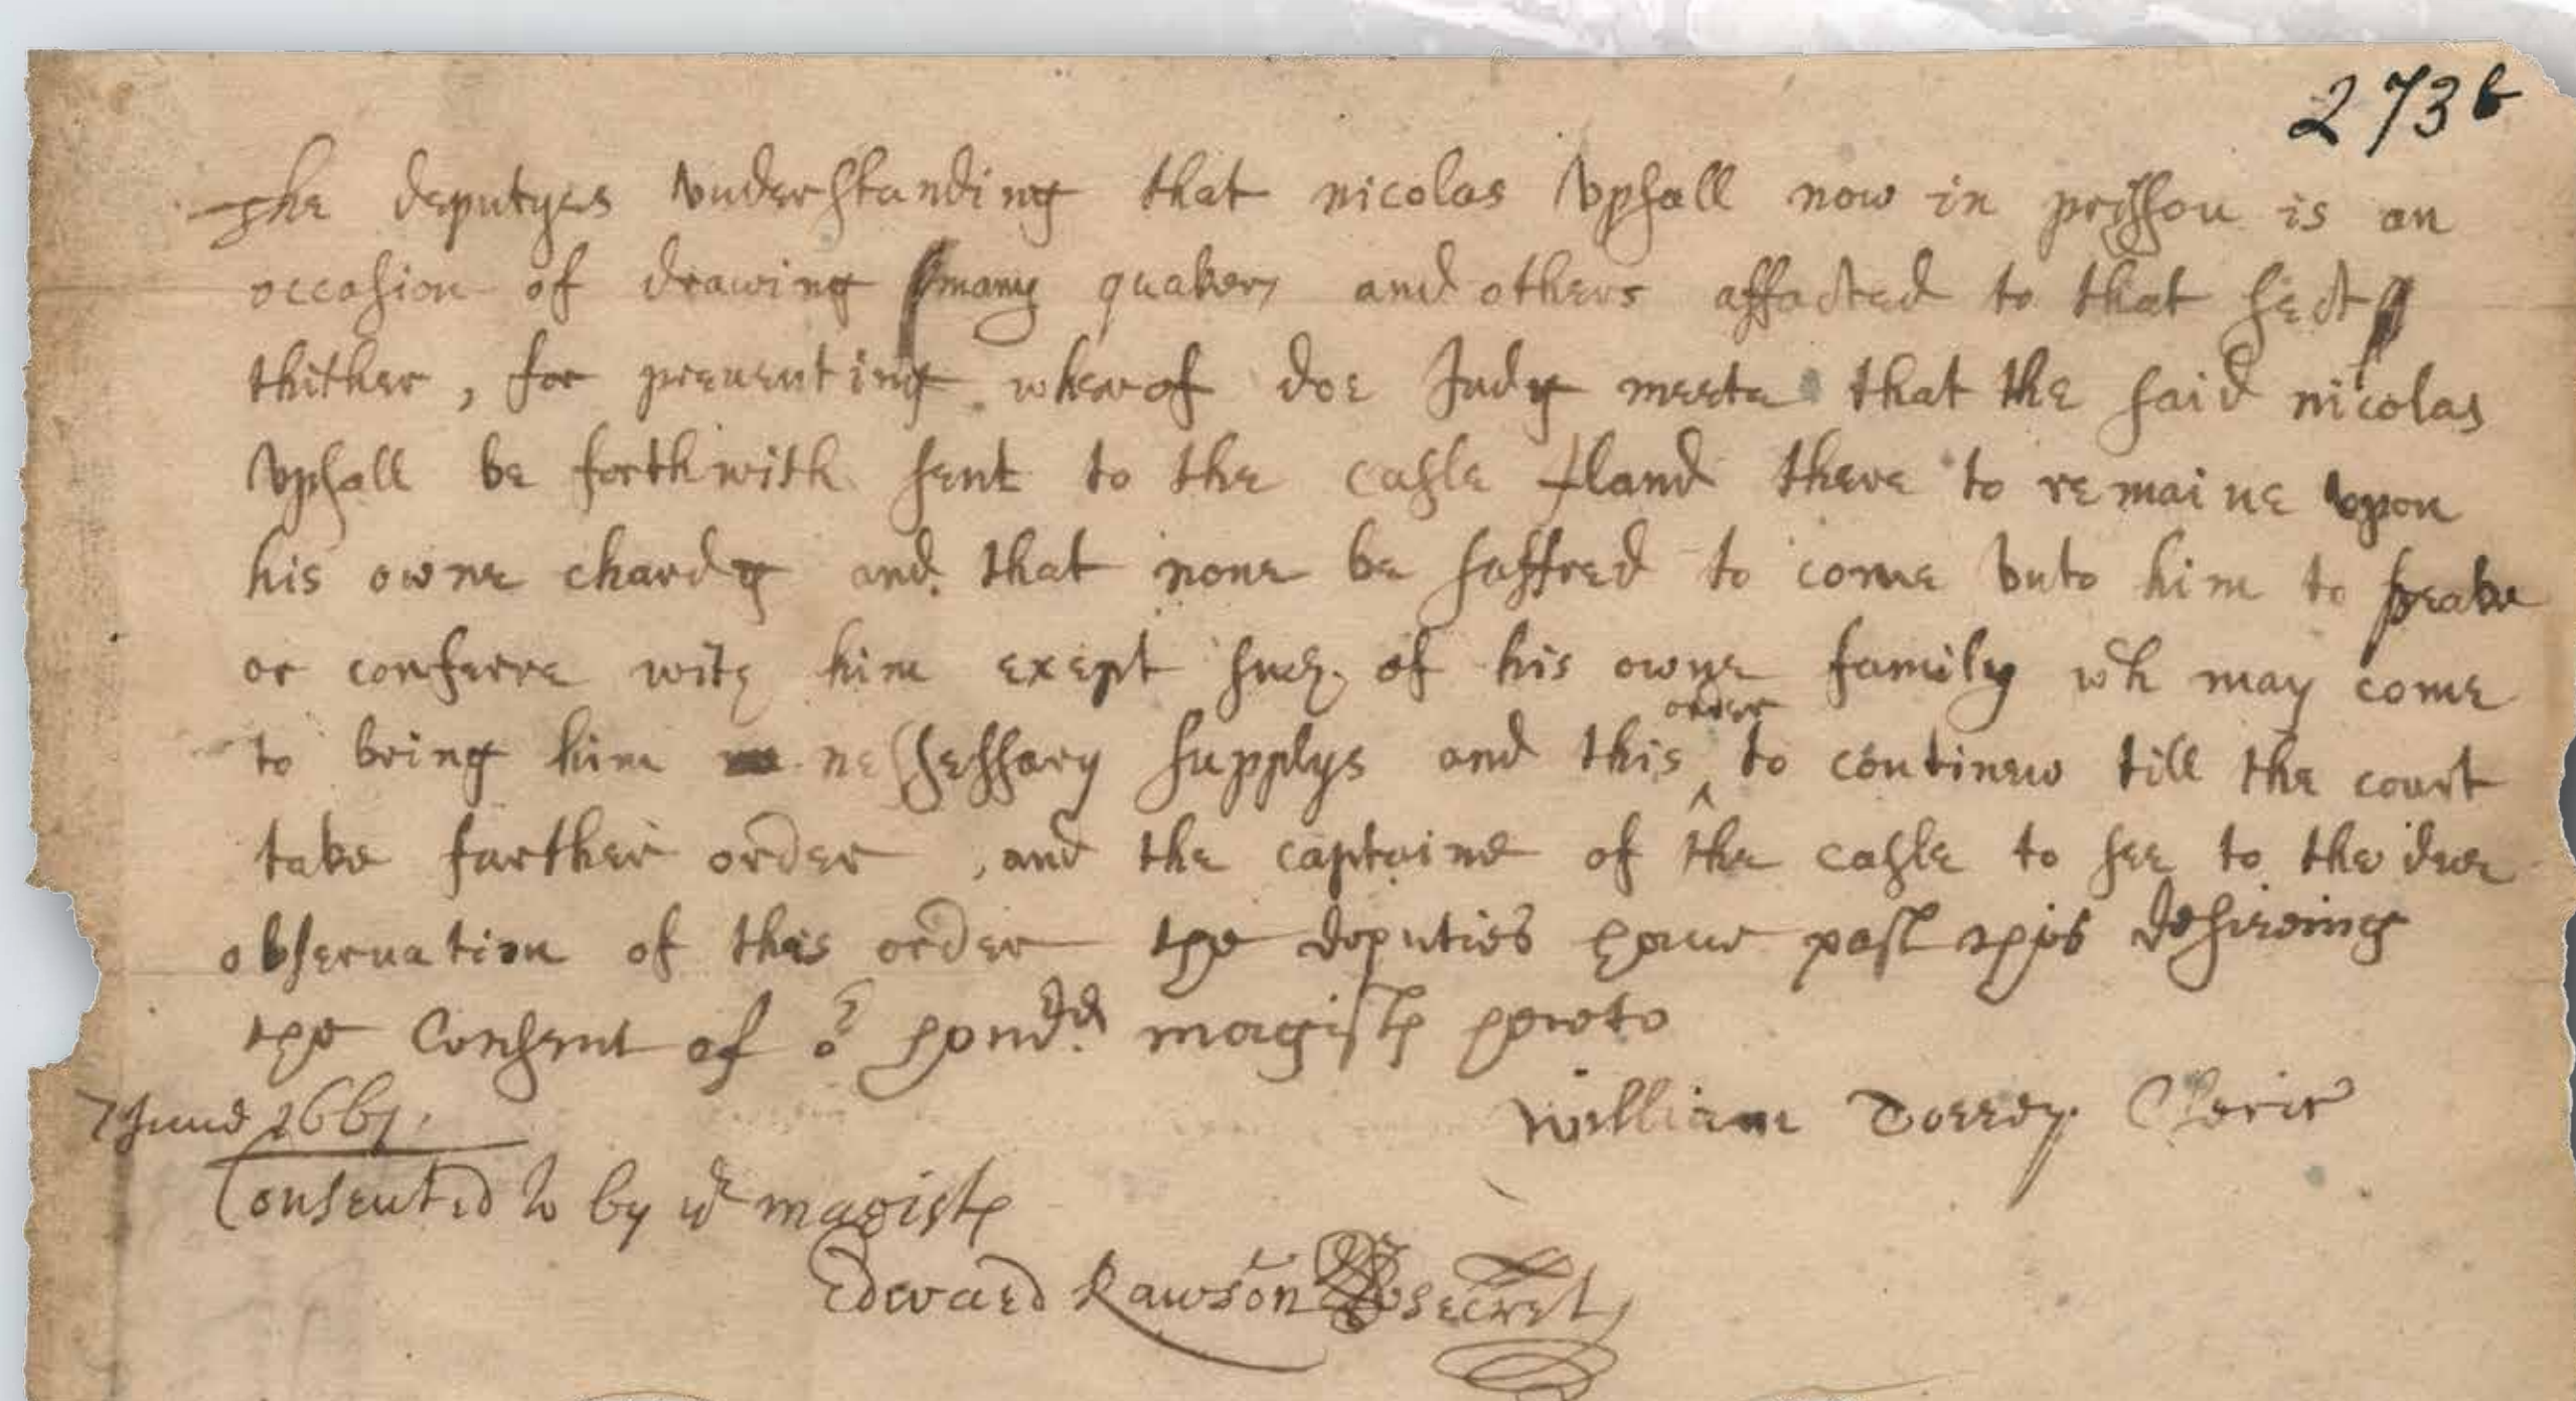 273b
The deputyes vnderstanding that nicolas vpsall now in prisson is an
occasion of drawing many quakers and others affected to that sect
thither, for preuenting wherof doe Judg meete that the said nicolas
vpsall be forthwith sent to the casle Iland there to remaine vpon
his owne chardg and that none be suffred to come vnto him to speake
or conferre with him exept such of his owne family wh may come
to bring him nessessary supplys and this ^order to continew till the court
take further order, and the captaine of the casle to see to the due
obseruation of this order the deputies haue past this desireing
the Consent of or honrd magists hereto
William Torrey Cleric
7 June 1661.
Consented to by ye magists
Edward Rawson secrety